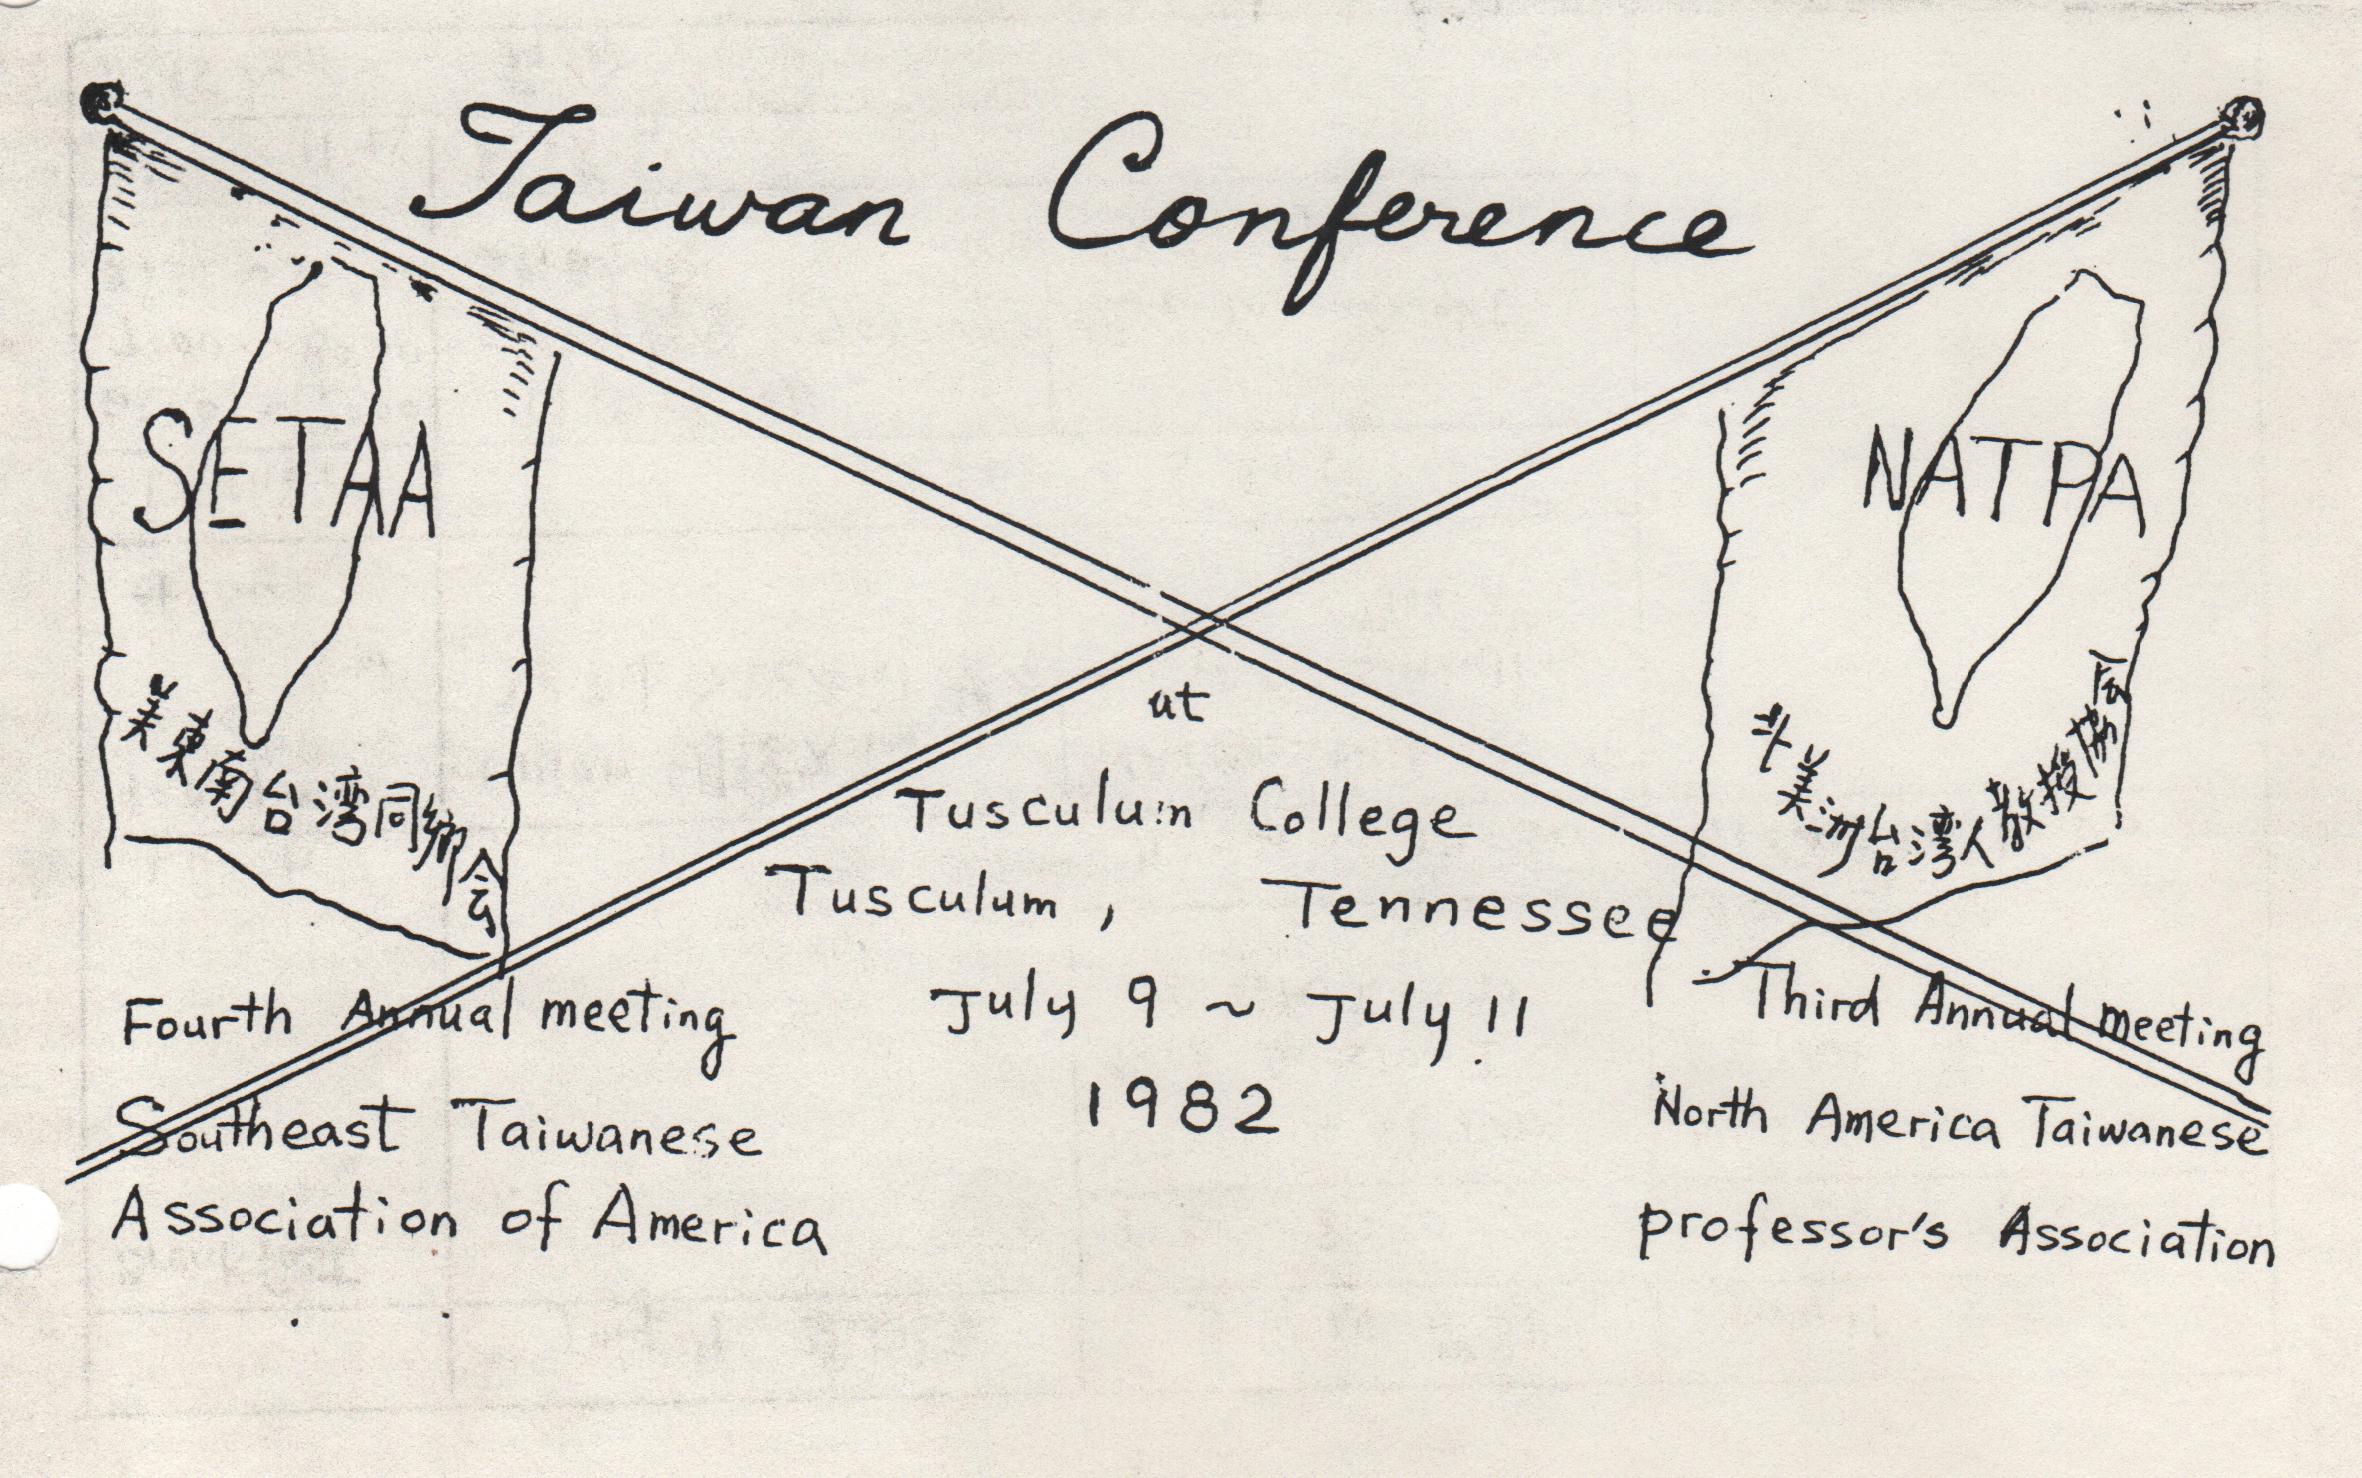 Taiwan Conference
SETAA
NATPA
美東南台湾同鄉会
北美洲台湾人教授協会
at
Tusculum College
Tusculum, Tennessee
July 9 ~ July 11
1982
Fourth Annual meeting
Southeast Taiwanese
Association of America
Third Annual meeting
North America Taiwanese
professor's Association